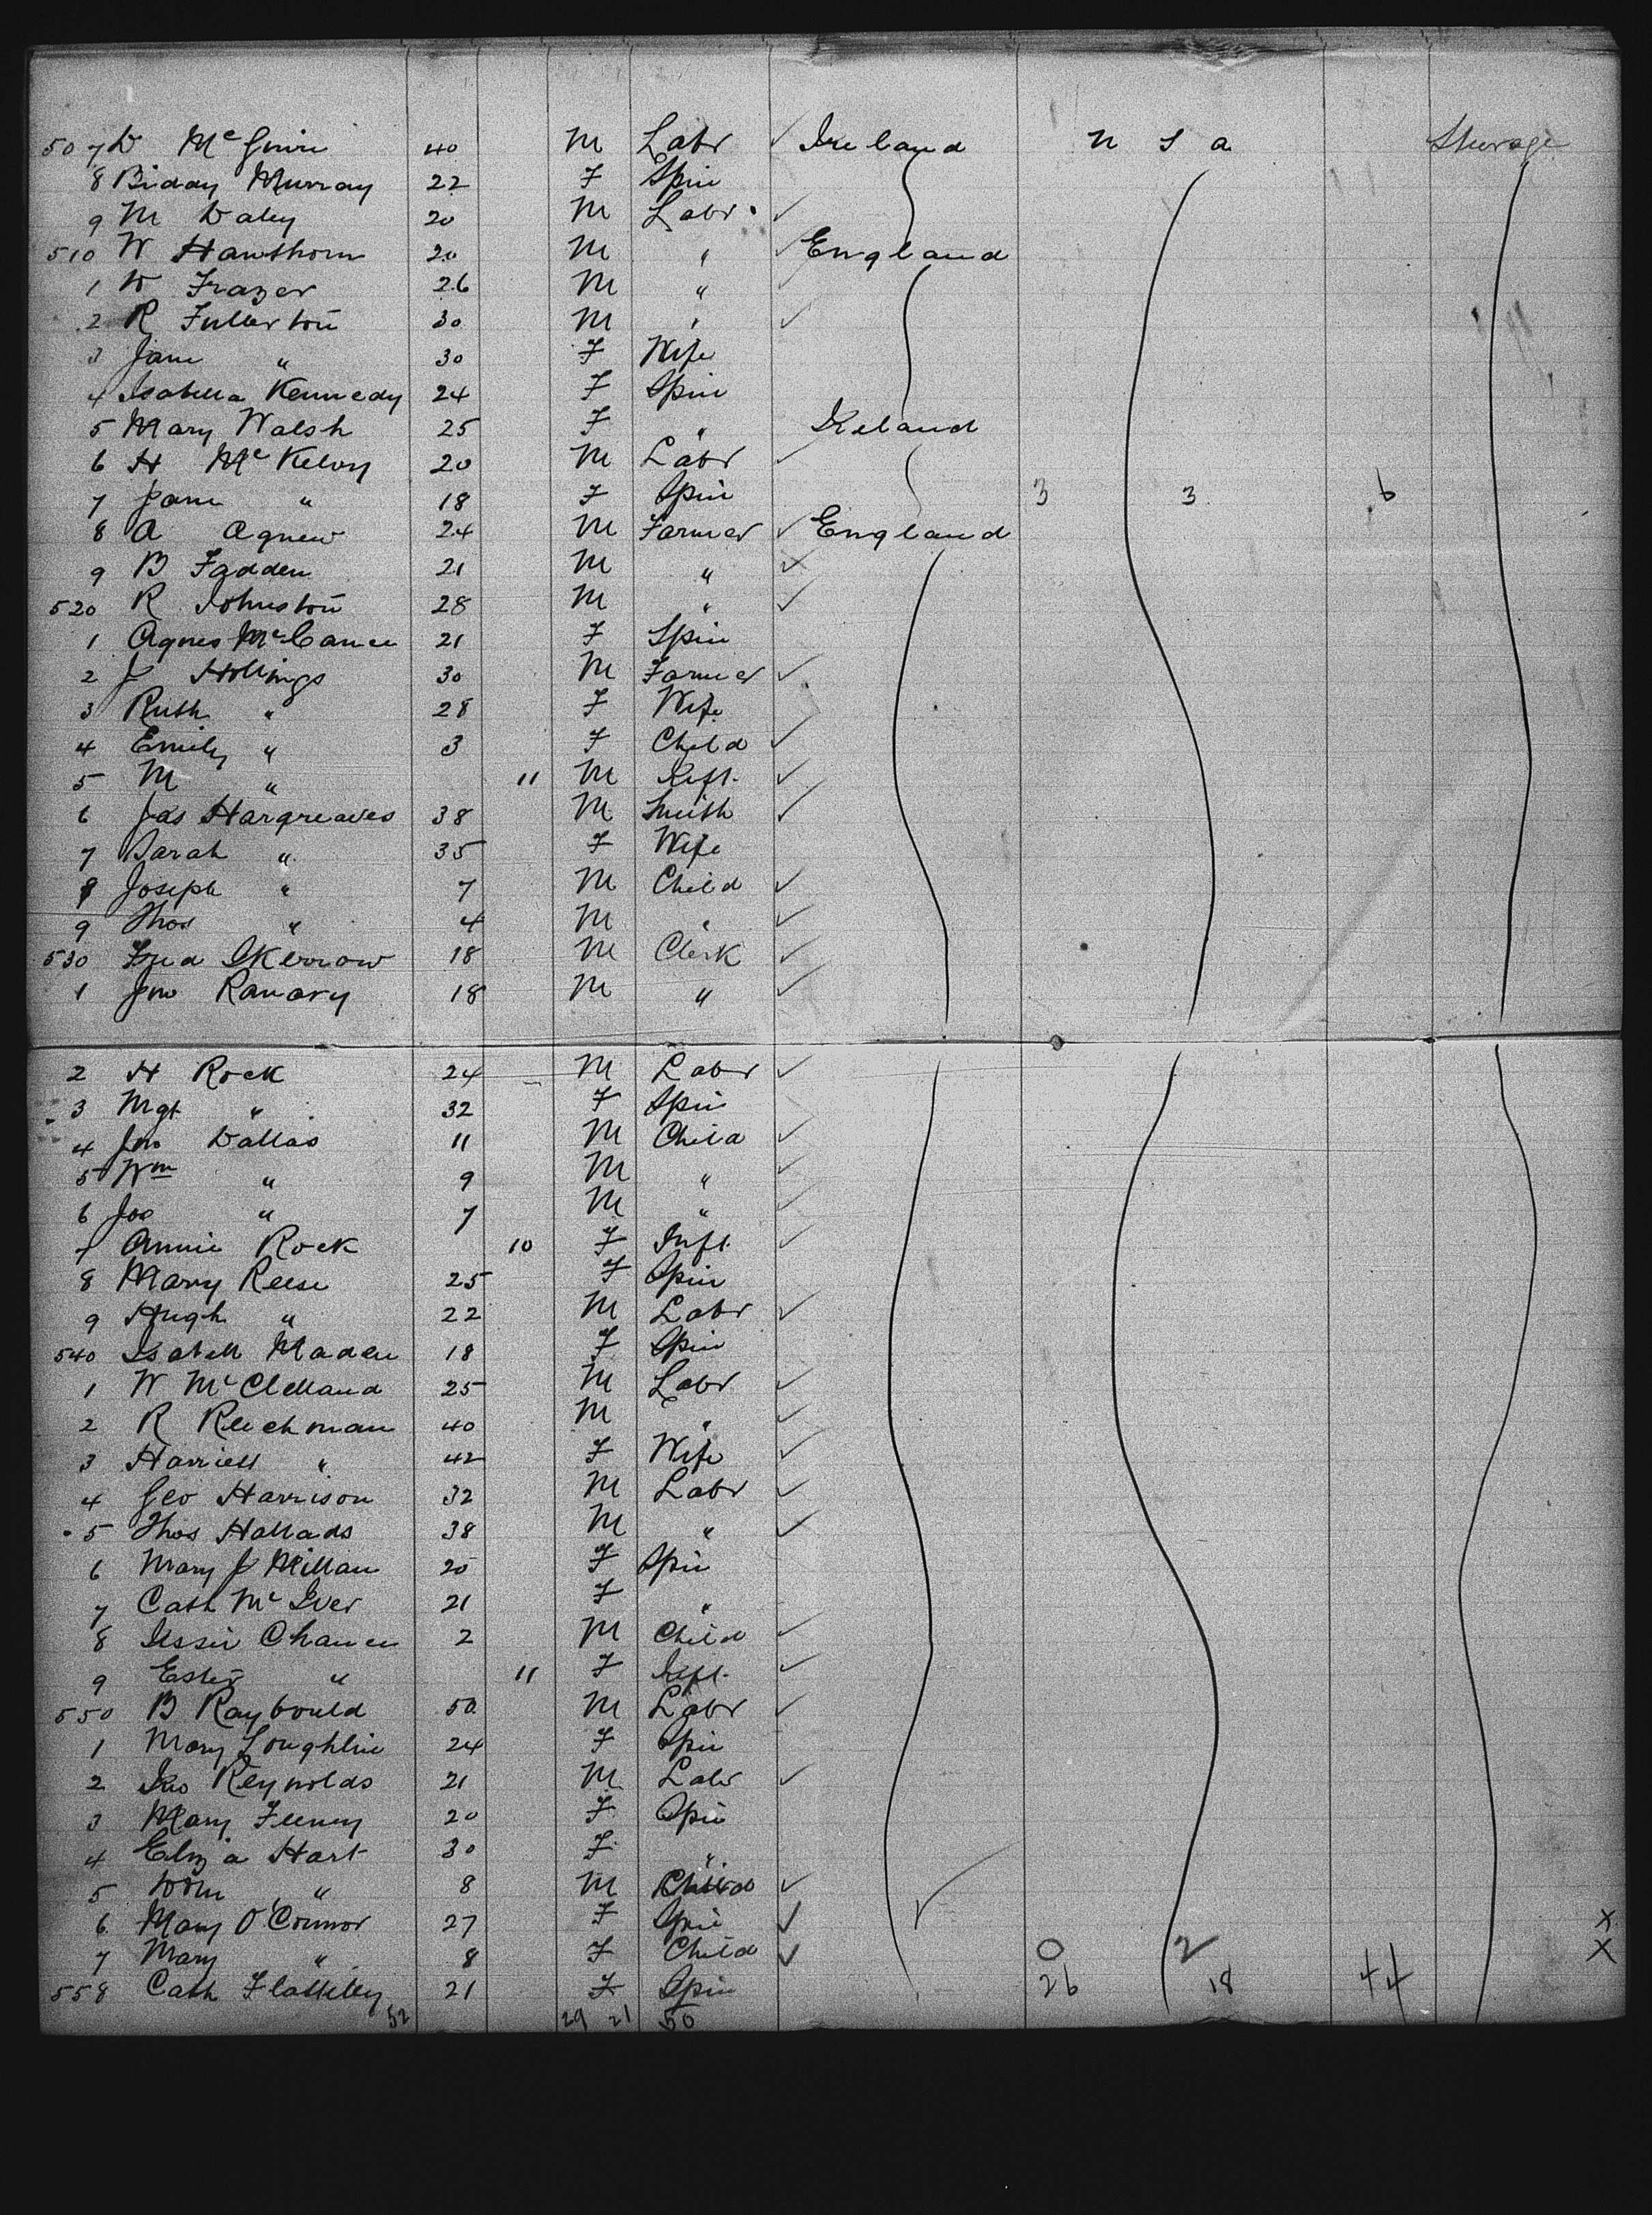 507 D McGuire 40 M Labr ✓ Ireland U S A Steerage
8 Biddy Murray 22 F Spin
9 M Daley 20 M Labr ✓
510 W Hawthorn 20 M " ✓ England
1 W Frazer 26 M " ✓
2 R Fullerton 30 M " ✓
3 Jane " 30 F Wife
4 Isabella Kennedy 24 F Spin
5 Mary Walsh 25 F " Ireland
6 H McKelvy 20 M Labr ✓
7 Jane " 18 F Spin 3 3 6
8 A Agnew 24 M Farmer ✓ England
9 B Fadden 21 M " ✓
520 R Johnston 28 M " ✓
1 Agnes McCance 21 F Spin
2 J Hollings 30 M Farmer ✓
3 Ruth " 28 F Wife
4 Emily " 3 F Child ✓
5 M " 11 M Inft. ✓
6 Jas Hargreaves 38 M Smith ✓
7 Sarah " 35 F Wife
8 Joseph " 7 M Child ✓
9 Thos " 4 M " ✓
530 Fred Skerrow 18 M Clerk ✓
1 Jno 18 M " ✓
2 H Rock 24 M Labr ✓
3 Mgt " 32 F Spin
4 Jno Dallas 11 M Child ✓
5 Wm " 9 M " ✓
6 Jos " 7 M " ✓
7 Annie Rock 10 F Inft. ✓
8 Mary Reese 25 F Spin
9 Hugh " 22 M Labr ✓
540 Isabell Maden 18 F Spin
1 W McClelland 25 M Labr ✓
2 R Reechman 40 M " ✓
3 Harriett " 42 F Wife ✓
4 Geo Harrison 32 M Labr ✓
5 Thos Hallads 38 M " ✓
6 Mary J Millan 20 F Spin
7 Cath McIver 21 F "
8 Jessie Chance 2 M Child ✓
9 Ester " 11 F Inft. ✓
550 B Raybould 50 M Labr ✓
1 Mary Loughlin 24 F Spin
2 Jno Reynolds 21 M Labr ✓
3 Mary Feeney 20 F Spin
4 Eliza Hart 30 F "
5 " 8 M Child ✓
6 Mary O'Connor 27 F Spin ✓ X
7 Mary " 8 F Child ✓ 0 2 X
558 Cath Flattley 21 F Spin 26 18 44
52 29 21 50